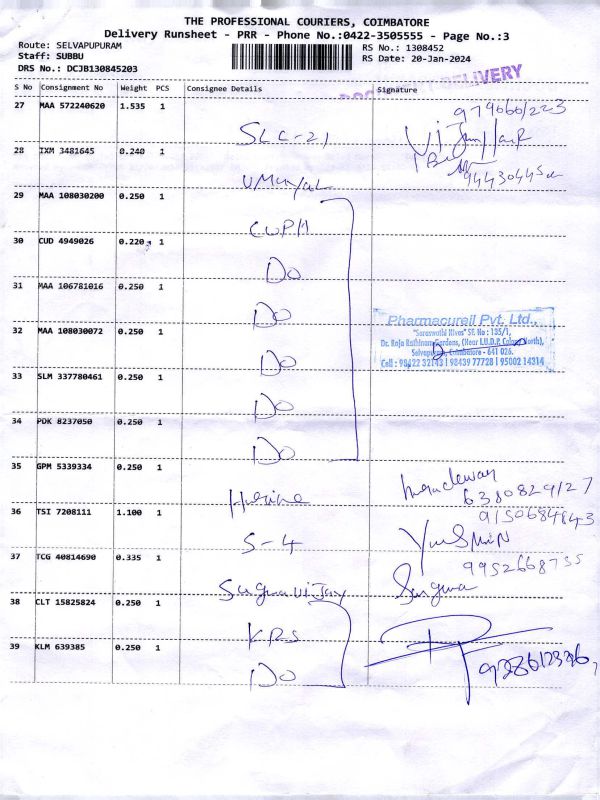 THE PROFESSIONAL COURIERS, COIMBATORE
Delivery Runsheet - PRR - Phone No.:0422-3505555 - Page No.:3
Route: SELVAPUPURAM
RS No.: 1308452
Staff: SUBBU
RS Date: 20-Jan-2024
DRS No.: DCJB130845203
DELIVERY
S No Consignment No Weight PCS Consignee Details Signature
27 MAA 572240620 1.535 1
SLC-21
28 IXM 3481645 0.240 1
29 MAA 108030200 0.250 1
CUPH
30 CUD 4949026 0.220 1
Do
31 MAA 106781016 0.250 1
Do
Pharmacureil Pvt. Ltd.,
"Saraswathi Nivas" SF. No : 135/1,
32 MAA 108030072 0.250 1
Dr. Raja Rathinam Gardens, (Near I.U.D.P. Colony North),
Selvapuram, Coimbatore - 641 026.
Do
Cell : 98422 32143 | 98439 77728 | 95002 14314
33 SLM 337780461 0.250 1
Do
34 PDK 8237050 0.250 1
Do
35 GPM 5339334 0.250 1
6380829127
36 TSI 7208111 1.100 1
9150684843
S-4
37 TCG 40814690 0.335 1
9952668755
38 CLT 15825824 0.250 1
KRS
39 KLM 639385 0.250 1
Do